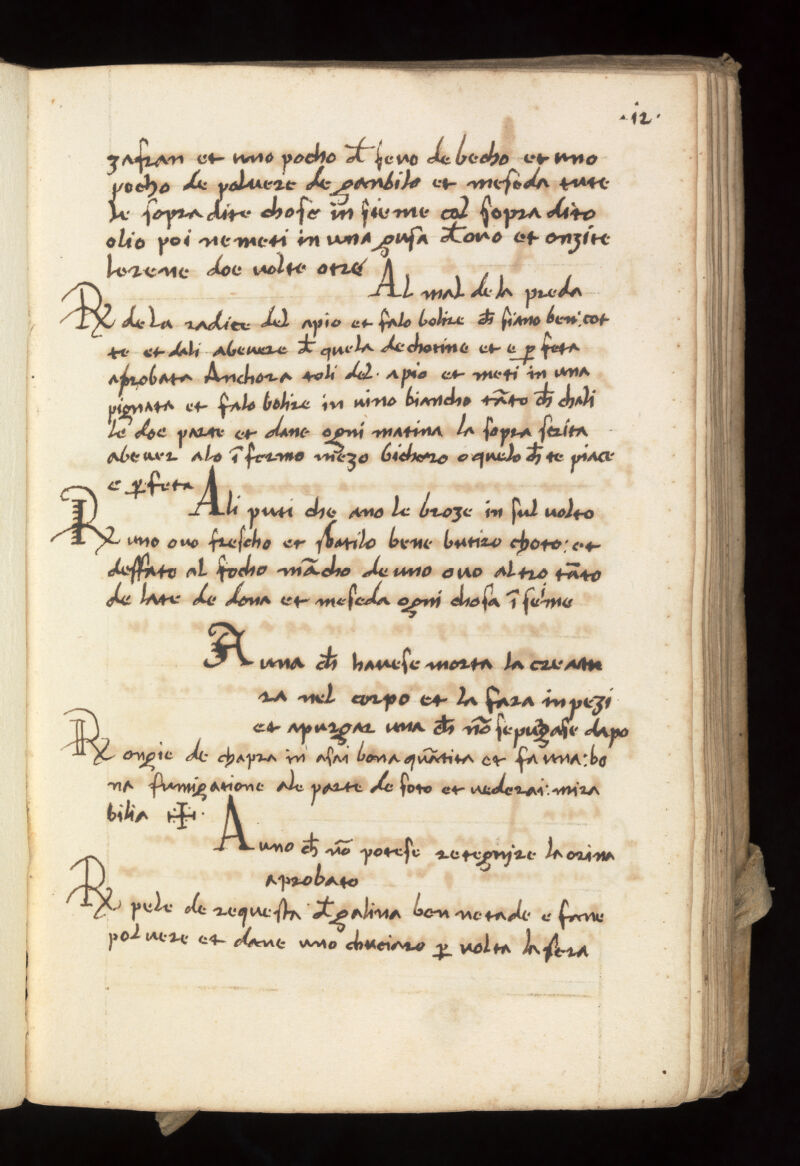 .12.
zafran et uno pocho d̄ sevo de becho et uno
pocho de polvere de ganbilo et meseda tute
le sopra dite chose in sieme col sopra dito
olio poi ne meti in una gusa d̄ ovo et onzite
le rene doe volte o tre
Al mal de la preda
Rx de la radice del apio et falo bolire ch̄ siano ben: cot
te et dali abevere d̄ quela dechotine et e p̱ feta
aprobata Anchora toli del. apio et meti in una
pignata et falo bolire in vino biancho tāto ch̄ chali
le doe parte et dane ogni matina la sopra scrita
abever alo īfermo mēzo bichero o quelo ch̄ te piace
e p̱feta
Ali puti che ano le broze in sul volto
Rx uno ovo frescho et sbatilo bene butiro choto: et
deffato al focho mācho de uno ovo altro tāto
de late de dona et meseda ogni chosa ī seime
A una ch̄ havese morta la creatu
ra nel corpo et la fara in pezi
et apurgar una ch̄ nō sepurgase dapo
Rx ongie de chapra in asai bona quātita et fa una: bo
na fumigatione ale parte de soto et vederai: mira
bilia ✠.
A uno ch̄ nō potese retegnire la orina
aprobato
Rx pele de requesta d̄ galina ben netade e fane
polvere et dane uno chuciaro p̱ volta la sera